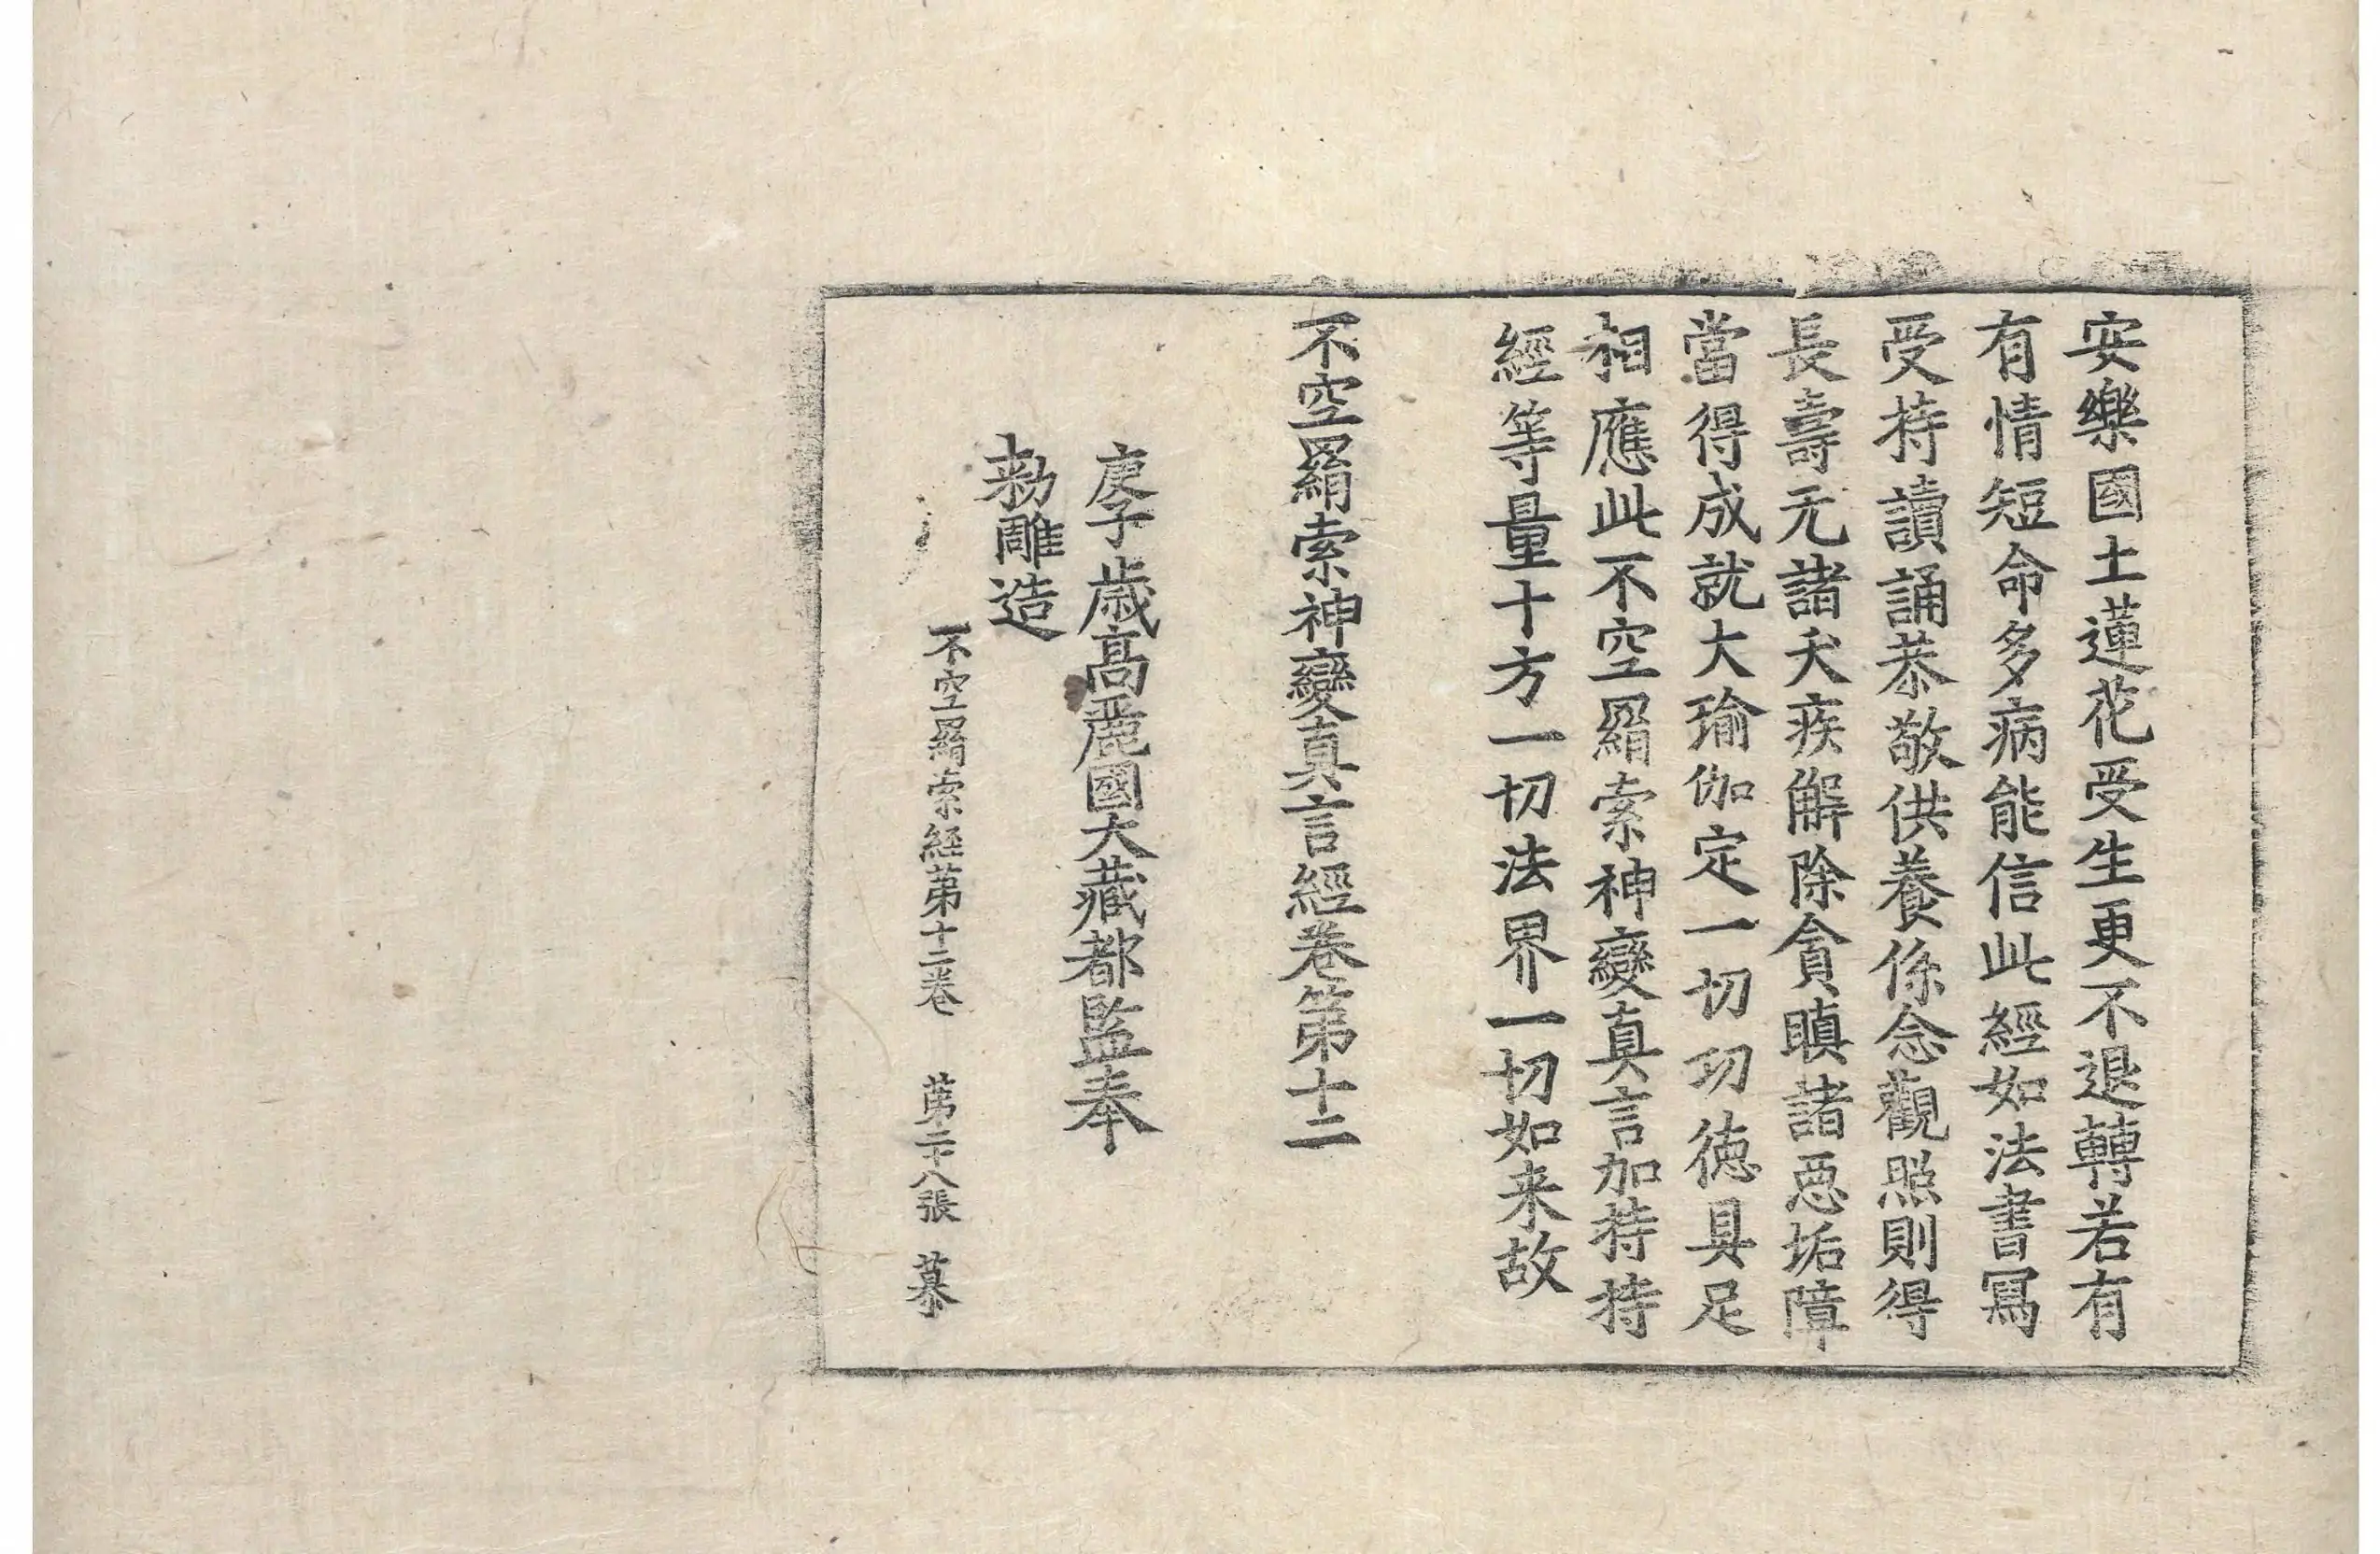 安樂國土蓮花受生更不退轉若有
有情短命多病能信此經如法書寫
受持讀誦恭敬供養係念觀照則得
長壽无諸夭疾解除貪瞋諸惡垢障
當得成就大瑜伽定一切功德具足
相應此不空羂索神變真言加持持
經等量十方一切法界一切如来故
不空羂索神變真言經卷第十二
庚子歲高麗國大藏都監奉
勑雕造
不空羂索經第十二卷 第二十八張 慕